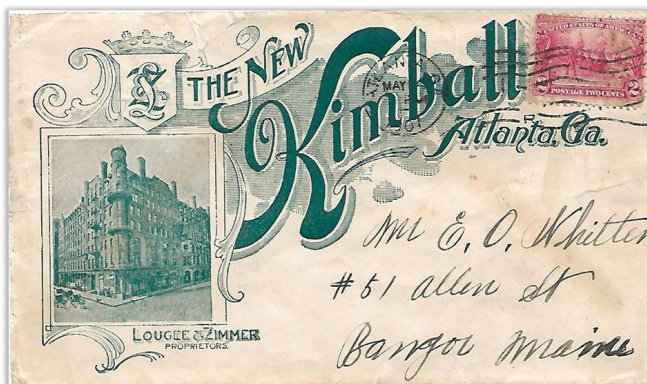 THE NEW
Kimball
Atlanta, Ga.
UNITED STATES OF AMERICA
2 POSTAGE TWO CENTS 2
MAY
LOUGEE & ZIMMER
PROPRIETORS.
E. O. Whitten
#51 Allen St
Bangor Maine